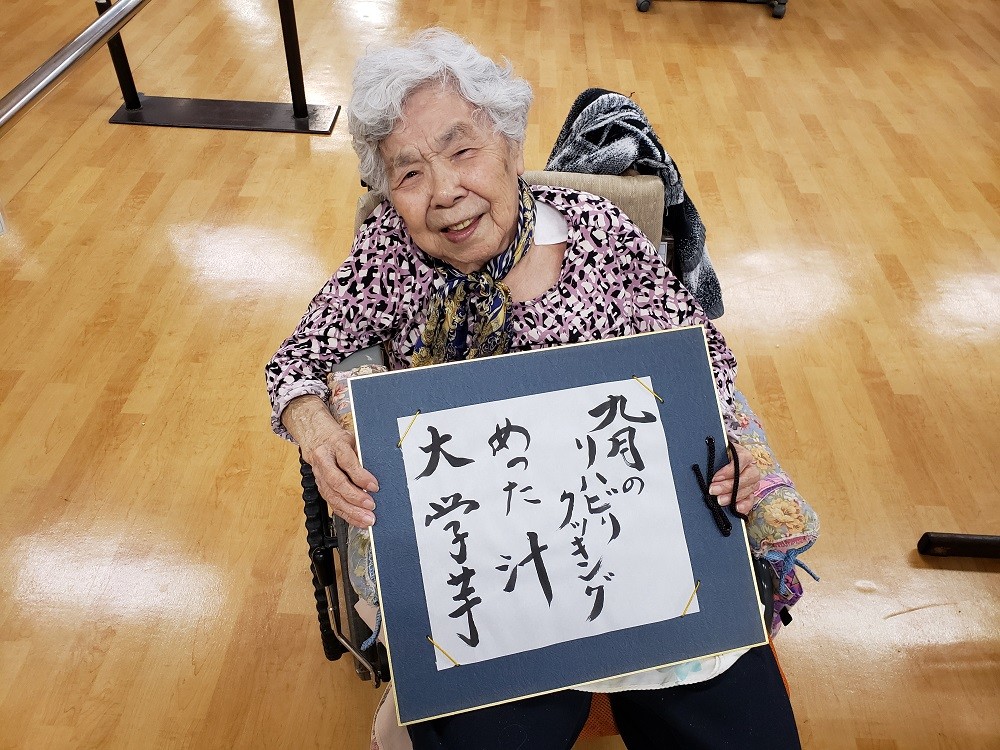 九月の
リハビリ
クッキング
めった汁
大学芋